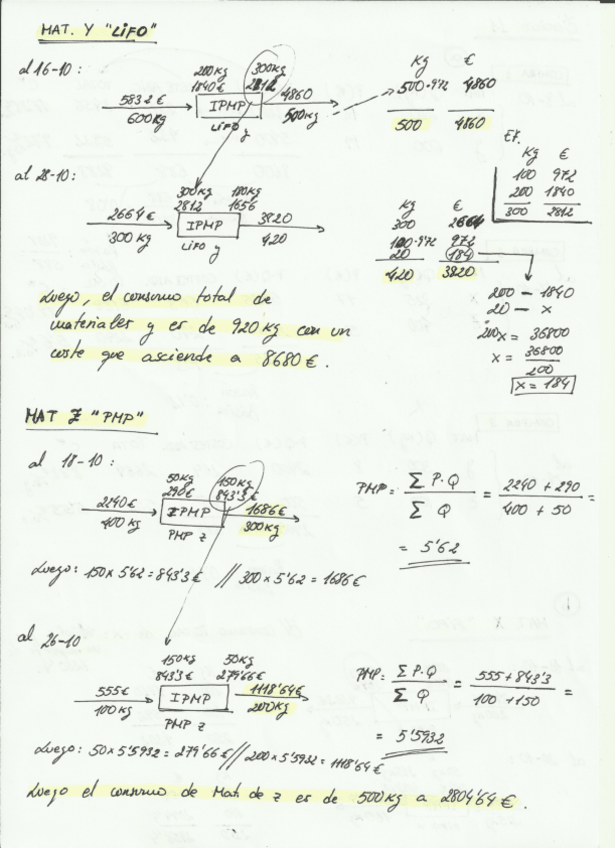 MAT. Y "LIFO"
al 16-10:
200kg 300kg
1840€ 2812
5832€ IPMP 4860
600kg LIFO y 500kg
Kg €
500·9'72 4860
500 4860
Ef.
Kg €
100 972
200 1840
300 2812
al 28-10:
300kg 180kg
2812 1656
2664€ IPMP 3820
300 kg LIFO y 420
Kg €
300 2664
100·9'72 972
20 184
420 3820
200 — 1840
20 — x
200x = 36800
x = 36800
200
x = 184
Luego, el consumo total de
materiales y es de 920 kg con un
coste que asciende a 8680 €.
MAT Z "PMP"
al 18-10:
50kg 150kg
290€ 843'3 €
2240€ IPMP 1686€
400 kg PMP z 300kg
PMP = Σ P·Q = 2240 + 290 =
Σ Q 400 + 50
= 5'62
Luego: 150 x 5'62 = 843'3 € // 300 x 5'62 = 1686 €
al 26-10
150kg 50kg
843'3€ 279'66€
555€ IPMP 1118'64€
100 kg PMP z 200kg
PMP: Σ P·Q = 555 + 843'3 =
Σ Q 100 + 150
= 5'5932
Luego: 50 x 5'5932 = 279'66 € // 200 x 5'5932 = 1118'64 €
Luego el consumo de Mat. de z es de 500 Kg a 2804'64 €.